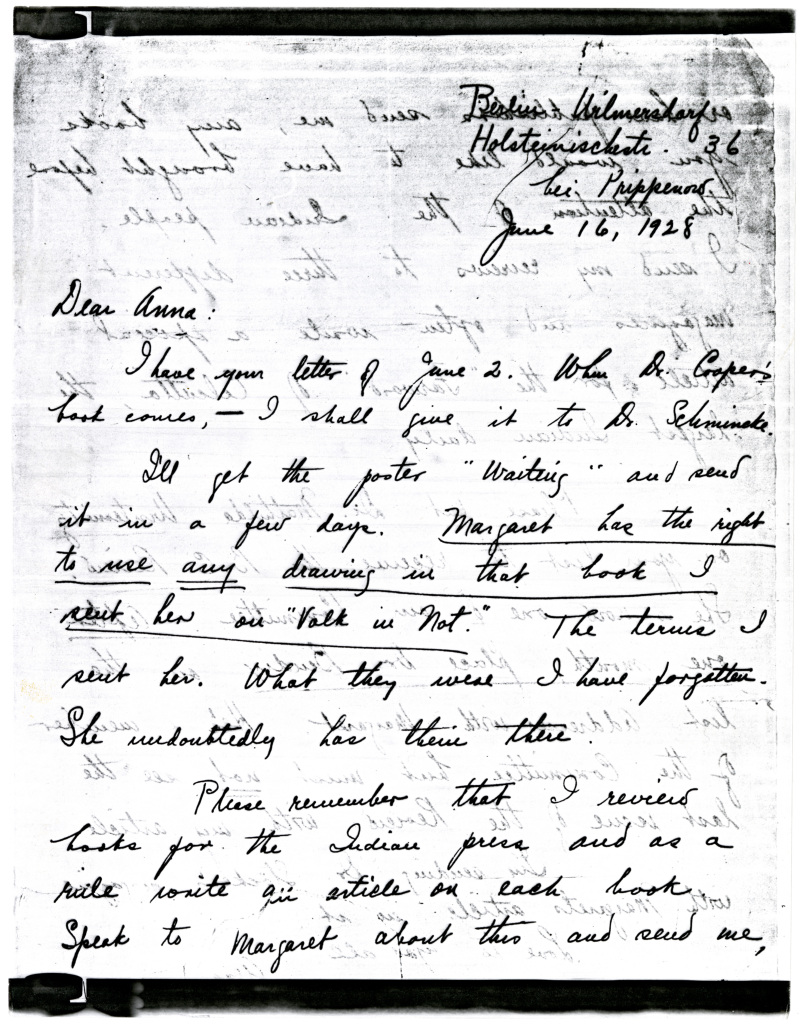 Berlin Wilmersdorf
Holsteinischestr. 36
bei Prippenow.
June 16, 1928
Dear Anna:
I have your letter of June 2. When Dr. Cooper's
book comes, — I shall give it to Dr. Schmincke.
I'll get the poster "Waiting" and send
it in a few days. Margaret has the right
to use any drawing in that book I
sent her on "Volk in Not." The terms I
sent her. What they were I have forgotten.
She undoubtedly has them there.
Please remember that I review
books for the Indian press and as a
rule write an article on each book.
Speak to Margaret about this and send me,